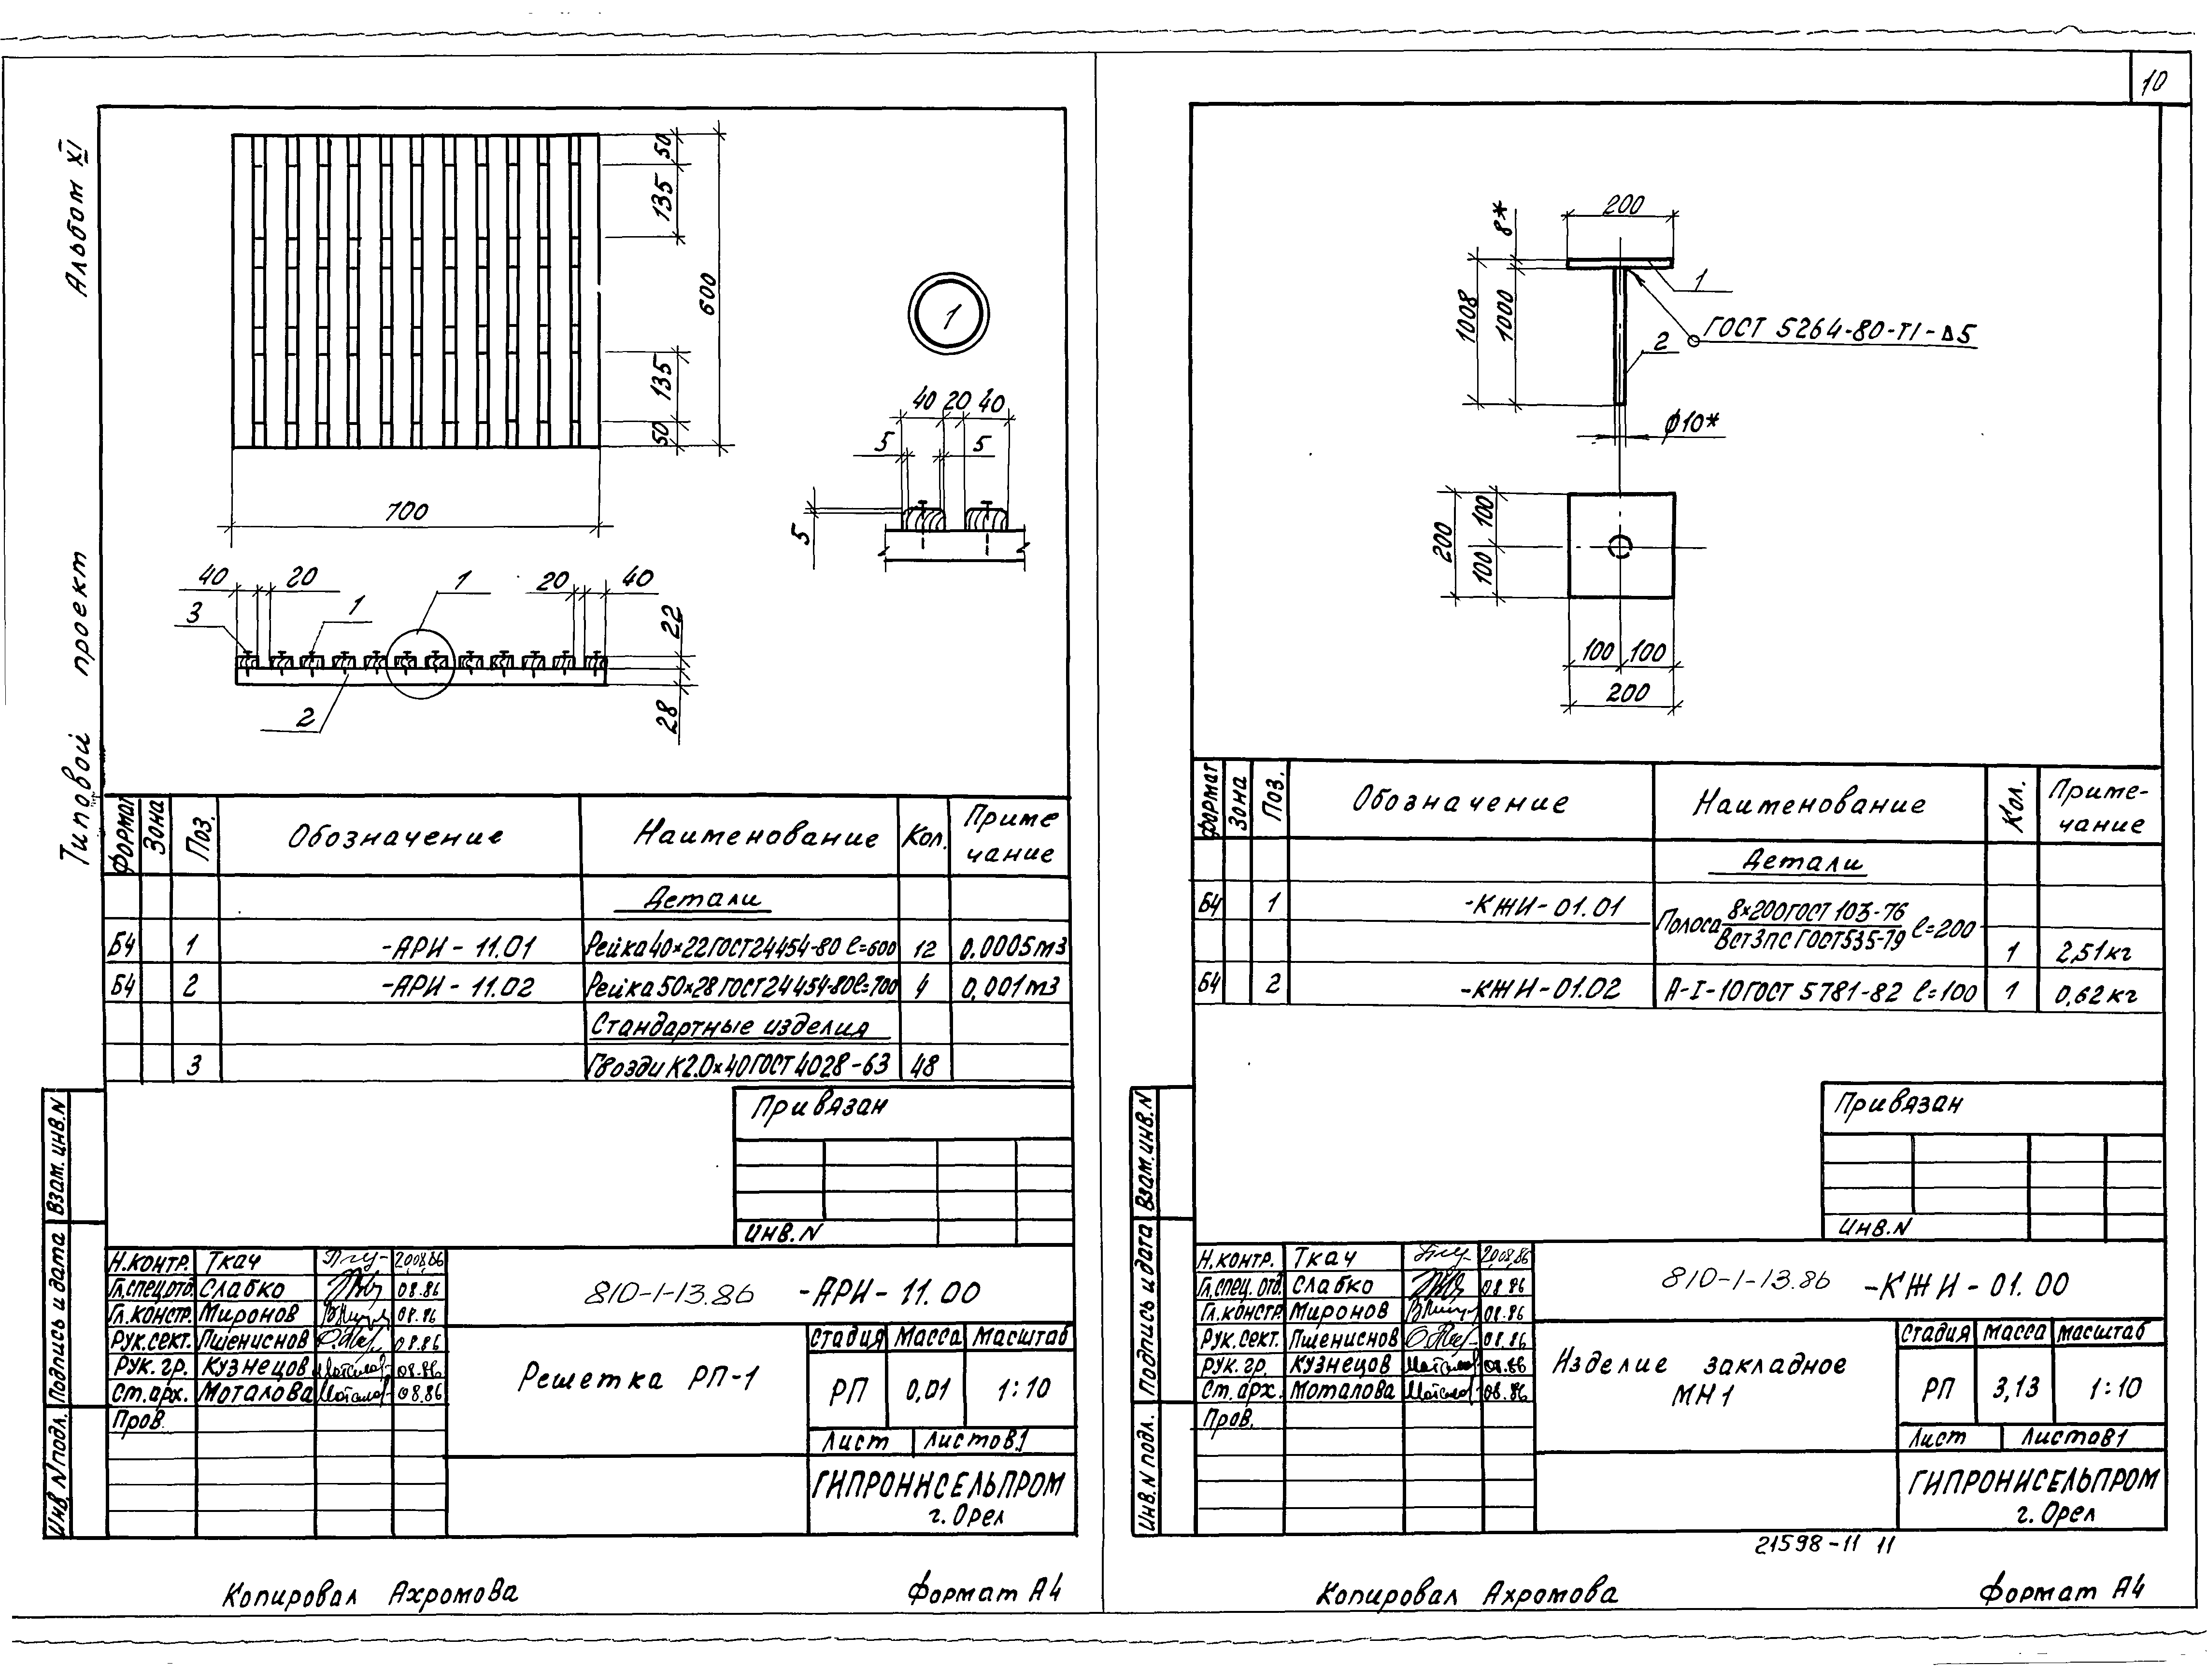 10
Альбом XI
Типовой проект
50
135
600
135
50
700
1
40 20 40
5 5
5
40 20 1 20 40
3 1
22
2
28
Формат Зона Поз. Обозначение Наименование Кол. Приме
чание
Детали
Б4 1 -АРИ-11.01 Рейка 40×22 ГОСТ 24454-80 ℓ=600 12 0.0005м3
Б4 2 -АРИ-11.02 Рейка 50×28 ГОСТ 24454-80 ℓ=700 4 0,001м3
Стандартные изделия
3 Гвозди К2.0×40 ГОСТ 4028-63 48
Привязан
Инв.N
Взам. инв.N
Подпись и дата
Инв. N подл.
Н.контр. Ткач 20.08.86
Гл.спец.отд. Слабко 08.86
Гл.констр. Миронов 08.86
Рук.сект. Пшениснов 08.86
Рук. гр. Кузнецов 08.86
Ст.арх. Моталова 08.86
Пров.
810-1-13.86 -АРИ-11.00
Решетка РП-1
Стадия Масса Масштаб
РП 0,01 1:10
Лист Листов 1
ГИПРОНИСЕЛЬПРОМ
г. Орел
Копировал Ахромова Формат А4
200
8*
1008
1000
1
ГОСТ 5264-80-Т1-Δ5
2
ϕ10*
200
100
100
100 100
200
Формат Зона Поз. Обозначение Наименование Кол. Приме-
чание
Детали
Б4 1 -КЖИ-01.01 Полоса 8×200 ГОСТ 103-76
ВСт3пс ГОСТ 535-79 ℓ=200 1 2,51кг
Б4 2 -КЖИ-01.02 А-I-10 ГОСТ 5781-82 ℓ=100 1 0,62кг
Привязан
Инв.N
Взам.инв.N
Подпись и дата
Инв.N подл.
Н.контр. Ткач 20.08.86
Гл.спец. отд. Слабко 08.86
Гл.констр. Миронов 08.86
Рук.сект. Пшениснов 08.86
Рук.гр. Кузнецов 08.86
Ст.арх. Моталова 08.86
Пров.
810-1-13.86 -КЖИ-01.00
Изделие закладное
МН1
Стадия Масса Масштаб
РП 3,13 1:10
Лист Листов 1
ГИПРОНИСЕЛЬПРОМ
г. Орел
21598-11 11
Копировал Ахромова Формат А4